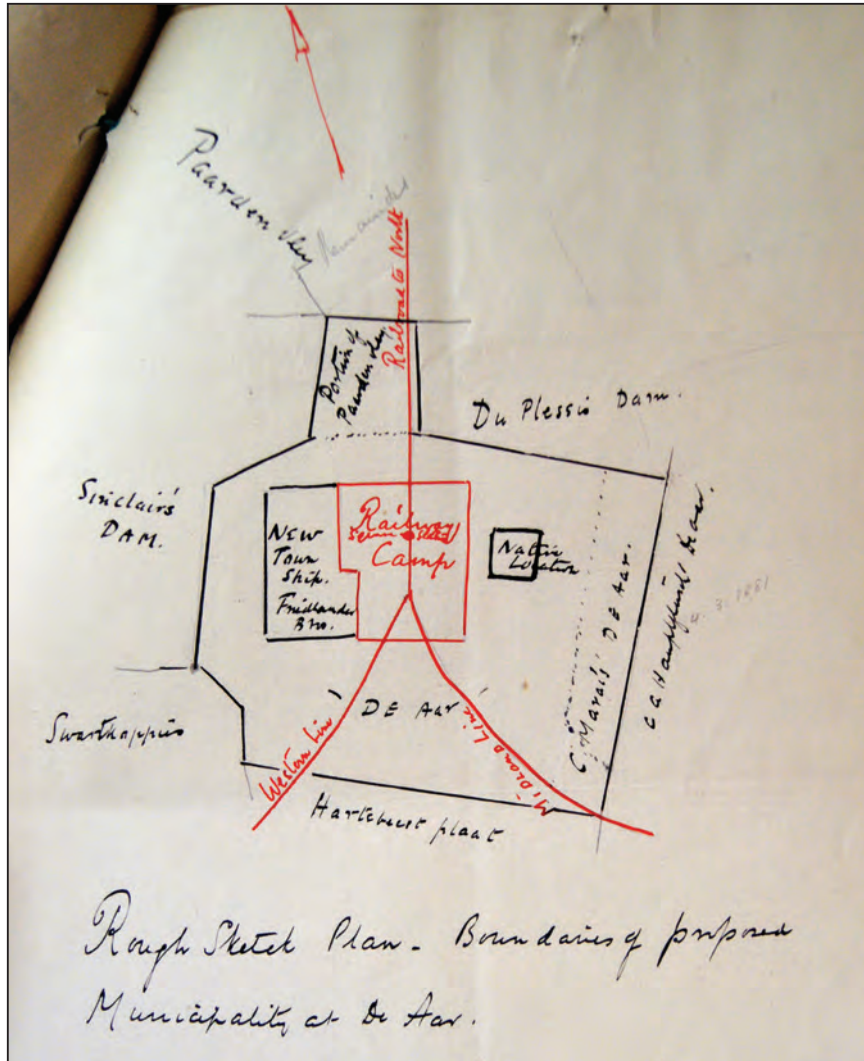 Paarden Vley
Remainder
Railroad to North
Portion of
Paarden Vley.
Du Plessis Dam.
Sinclair's
DAM.
NEW
Town
Ship.
Friedlander
Bros.
Railway
Camp
Native
Location
C. Marais' DE Aar.
DE Aar
Swartkoppies
Western Line
Midland Line
Hartebeest plaat
Rough Sketch Plan - Boundaries of proposed
Municipality at De Aar.